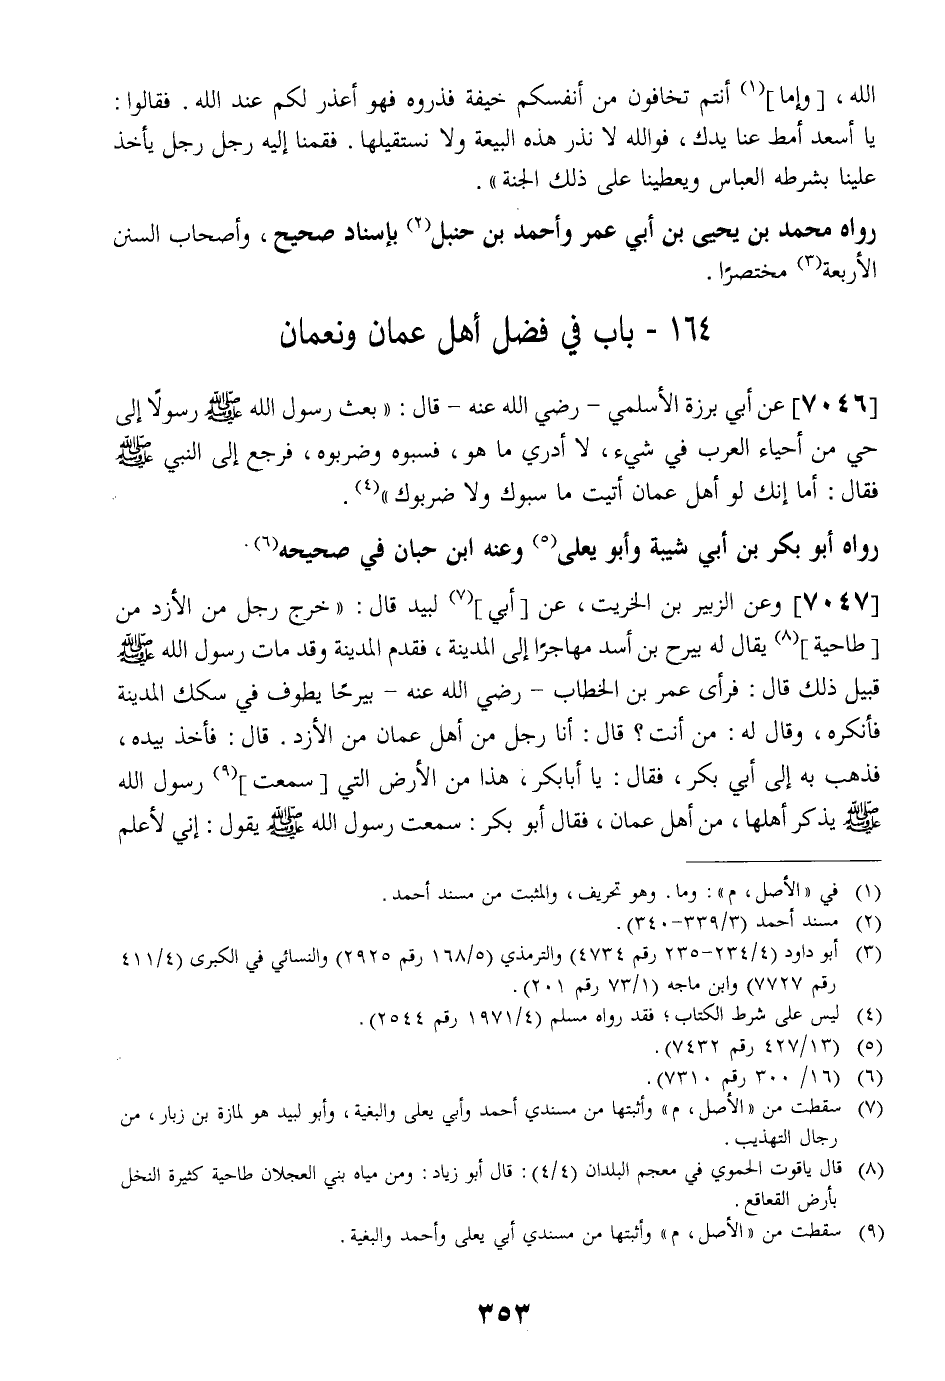 الله ، [ وإما ](١) أنتم تخافون من أنفسكم خيفة فذروه فهو أعذر لكم عند الله . فقالوا :
يا أسعد أمط عنا يدك ، فوالله لا نذر هذه البيعة ولا نستقيلها . فقمنا إليه رجل رجل يأخذ
علينا بشرطه العباس ويعطينا على ذلك الجنة » .
رواه محمد بن يحيى بن أبي عمر وأحمد بن حنبل(٢) بإسناد صحيح ، وأصحاب السنن
الأربعة(٣) مختصرًا .
١٦٤ - باب في فضل أهل عمان ونعمان
[٧٠٤٦] عن أبي برزة الأسلمي - رضي الله عنه - قال : « بعث رسول الله ﷺ رسولًا إلى
حي من أحياء العرب في شيء ، لا أدري ما هو ، فسبوه وضربوه ، فرجع إلى النبي ﷺ
فقال : أما إنك لو أهل عمان أتيت ما سبوك ولا ضربوك »(٤) .
رواه أبو بكر بن أبي شيبة وأبو يعلى(٥) وعنه ابن حبان في صحيحه(٦).
[٧٠٤٧] وعن الزبير بن الخريت ، عن [ أبي ](٧) لبيد قال : « خرج رجل من الأزد من
[ طاحية ](٨) يقال له بيرح بن أسد مهاجرًا إلى المدينة ، فقدم المدينة وقد مات رسول الله ﷺ
قبيل ذلك قال : فرأى عمر بن الخطاب - رضي الله عنه - بيرحًا يطوف في سكك المدينة
فأنكره ، وقال له : من أنت ؟ قال : أنا رجل من أهل عمان من الأزد . قال : فأخذ بيده ،
فذهب به إلى أبي بكر ، فقال : يا أبابكر ، هذا من الأرض التي [ سمعت ](٩) رسول الله
ﷺ يذكر أهلها ، من أهل عمان ، فقال أبو بكر : سمعت رسول الله ﷺ يقول : إني لأعلم
(١) في « الأصل ، م » : وما . وهو تحريف ، والمثبت من مسند أحمد .
(٢) مسند أحمد (٣/ ٣٣٩-٣٤٠) .
(٣) أبو داود (٤/ ٢٣٤-٢٣٥ رقم ٤٧٣٤) والترمذي (٥/ ١٦٨ رقم ٢٩٢٥) والنسائي في الكبرى (٤/ ٤١١
رقم ٧٧٢٧) وابن ماجه (١/ ٧٣ رقم ٢٠١) .
(٤) ليس على شرط الكتاب ؛ فقد رواه مسلم (٤/ ١٩٧١ رقم ٢٥٤٤) .
(٥) (١٣/ ٤٢٧ رقم ٧٤٣٢) .
(٦) (١٦/ ٣٠٠ رقم ٧٣١٠) .
(٧) سقطت من « الأصل ، م » وأثبتها من مسندي أحمد وأبي يعلى والبغية ، وأبو لبيد هو لمازة بن زبار ، من
رجال التهذيب .
(٨) قال ياقوت الحموي في معجم البلدان (٤/ ٤) : قال أبو زياد : ومن مياه بني العجلان طاحية كثيرة النخل
بأرض القعاقع .
(٩) سقطت من « الأصل ، م » وأثبتها من مسندي أبي يعلى وأحمد والبغية .
٣٥٣